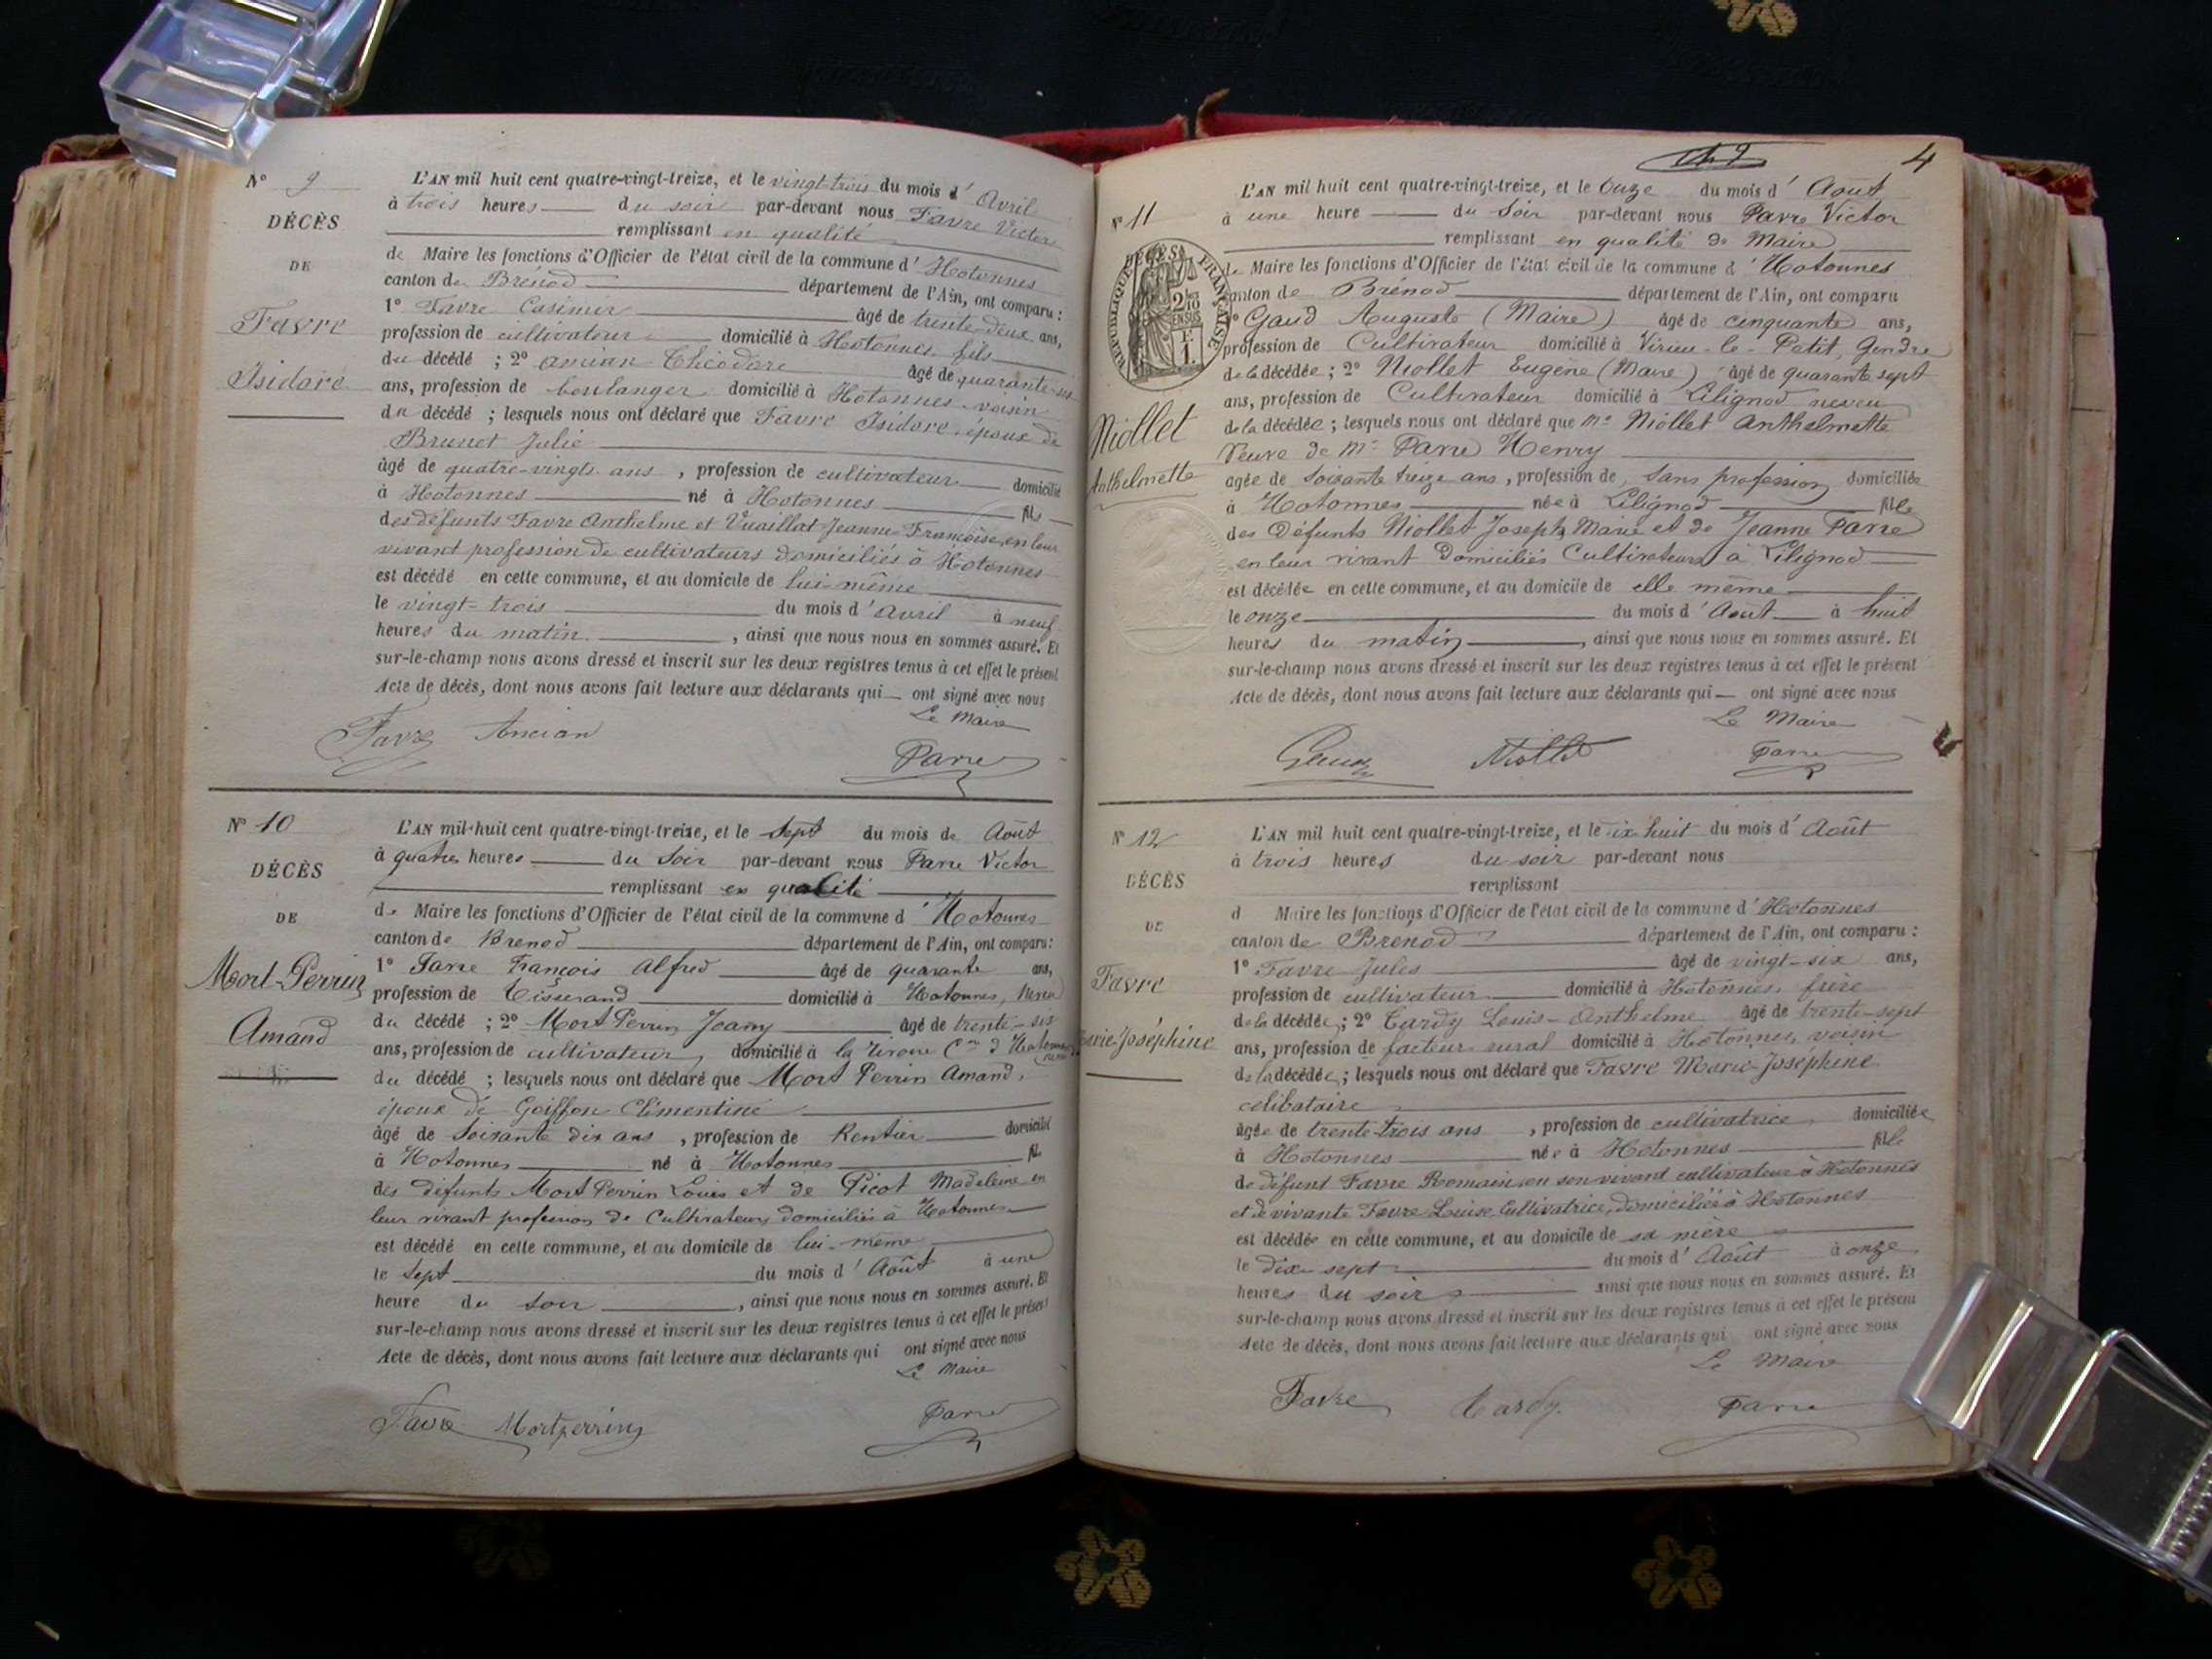 N° 9
DÉCÈS
DE
Favre
Isidore
L'AN mil huit cent quatre-vingt-treize, et le vingt-trois du mois d' Avril
à trois heures du soir par-devant nous Favre Victor
remplissant en qualité
de Maire les fonctions d'Officier de l'état civil de la commune d' Hotonnes
canton de Brénod département de l'Ain, ont comparu :
1° Favre Casimir âgé de trente-deux ans,
profession de cultivateur domicilié à Hotonnes, fils
du décédé ; 2° Ancian Théodore âgé de quarante-six
ans, profession de boulanger domicilié à Hotonnes, voisin
du décédé ; lesquels nous ont déclaré que Favre Isidore, époux de
Brunet Julie
âgé de quatre-vingts ans , profession de cultivateur domicilié
à Hotonnes né à Hotonnes fils
des défunts Favre Anthelme et Vuaillat Jeanne-Françoise, en leur
vivant profession de cultivateurs domiciliés à Hotonnes
est décédé en cette commune, et au domicile de lui-même
le vingt-trois du mois d' avril à neuf
heures du matin , ainsi que nous nous en sommes assuré. Et
sur-le-champ nous avons dressé et inscrit sur les deux registres tenus à cet effet le présent
Acte de décès, dont nous avons fait lecture aux déclarants qui ont signé avec nous
Le Maire
Favre Ancian Favre
N° 10
DÉCÈS
DE
Mort-Perrin
Amand
L'AN mil huit cent quatre-vingt-treize, et le sept du mois de Août
à quatre heures du Soir par-devant nous Favre Victor
remplissant en qualité
de Maire les fonctions d'Officier de l'état civil de la commune d' Hotonnes
canton de Brenod département de l'Ain, ont comparu :
1° Favre François Alfred âgé de quarante ans,
profession de Tisserand domicilié à Hotonnes, neveu
du décédé ; 2° Mort Perrin Joany âgé de trente-six
ans, profession de cultivateur domicilié à la Cne d' Hotonnes
du décédé ; lesquels nous ont déclaré que Mort Perrin Amand,
époux de Goiffon Clémentine
âgé de Soixante dix ans , profession de Rentier domicilié
à Hotonnes né à Hotonnes fils
des défunts Mort Perrin Louis et de Picot Madeleine en
leur vivant profession de Cultivateurs domiciliés à Hotonnes
est décédé en cette commune, et au domicile de lui-même
le Sept du mois d' Août à une
heure du Soir , ainsi que nous nous en sommes assuré. Et
sur-le-champ nous avons dressé et inscrit sur les deux registres tenus à cet effet le présent
Acte de décès, dont nous avons fait lecture aux déclarants qui ont signé avec nous
Le Maire
Favre Mortperrin Favre
4
N° 11
RÉPUBLIQUE FRANÇAISE
Niollet
Anthelmette
L'AN mil huit cent quatre-vingt-treize, et le Onze du mois d' Août
à une heure du Soir par-devant nous Favre Victor
remplissant en qualité de Maire
de Maire les fonctions d'Officier de l'état civil de la commune d' Hotonnes
canton de Brenod département de l'Ain, ont comparu
1° Gaud Auguste (Marie) âgé de cinquante ans,
profession de Cultivateur domicilié à Virieu-le-Petit, Gendre
de la décédée ; 2° Niollet Eugène (Marie) âgé de quarante sept
ans, profession de Cultivateur domicilié à Lilignod neveu
de la décédée ; lesquels nous ont déclaré que Me Niollet Anthelmette
Veuve de Mr Favre Henry
agée de Soixante treize ans , profession de, Sans profession domiciliée
à Hotonnes née à Lilignod fille
des Défunts Niollet Joseph Marie et de Jeanne Favre
en leur vivant Domiciliés Cultivateurs à Lilignod
est décédée en cette commune, et au domicile de elle même
le onze du mois d' Aout à huit
heures du matin , ainsi que nous nous en sommes assuré. Et
sur-le-champ nous avons dressé et inscrit sur les deux registres tenus à cet effet le présent
Acte de décès, dont nous avons fait lecture aux déclarants qui ont signé avec nous
Le Maire
Niollet Favre
N° 12
DÉCÈS
DE
Favre
Marie-Joséphine
L'AN mil huit cent quatre-vingt-treize, et le dix huit du mois d' Août
à trois heures du soir par-devant nous
remplissant
d Maire les fonctions d'Officier de l'état civil de la commune d' Hotonnes
canton de Brénod département de l'Ain, ont comparu :
1° Favre Jules âgé de vingt-six ans,
profession de cultivateur domicilié à Hotonnes, frère
de la décédée ; 2° Tardy Louis-Anthelme âgé de trente-sept
ans, profession de facteur rural domicilié à Hotonnes, voisin
de la décédée ; lesquels nous ont déclaré que Favre Marie-Joséphine
célibataire
âgée de trente-trois ans , profession de cultivatrice domiciliée
à Hotonnes née à Hotonnes fille
de défunt Favre Romain en son vivant cultivateur à Hotonnes
et de vivante Favre Louise, Cultivatrice, domiciliée à Hotonnes
est décédée en cette commune, et au domicile de sa mère
le dix sept du mois d' Août à onze
heures du soir ainsi que nous nous en sommes assuré. Et
sur-le-champ nous avons dressé et inscrit sur les deux registres tenus à cet effet le présent
Acte de décès, dont nous avons fait lecture aux déclarants qui ont signé avec nous
Le Maire
Favre Tardy Favre